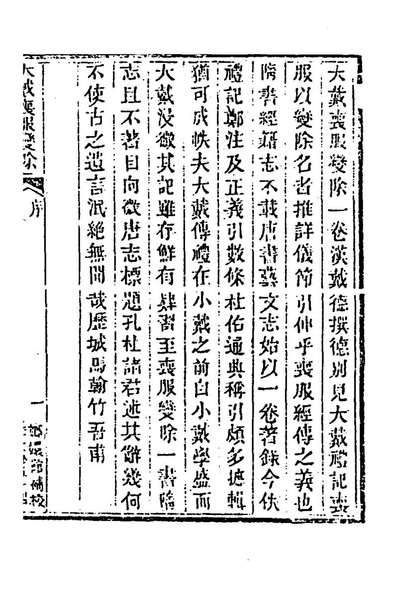 大戴喪服變除一卷漢戴德撰德別見大戴禮記喪
服以變除名者推詳儀節引伸乎喪服經傳之義也
隋書經籍志不載唐書藝文志始以一卷著錄今佚
禮記鄭注及正義引數條杜佑通典稱引頗多摭輯
猶可成帙夫大戴傳禮在小戴之前自小戴學盛而
大戴浸微其記雖存鮮有肄習至喪服變除一書隋
志且不著目向微唐志標題孔杜諸君述其餘幾何
不使古之遺言泯絕無聞哉歷城馬翰竹吾甫
大戴喪服變除
序
一
嫏嬛館補校